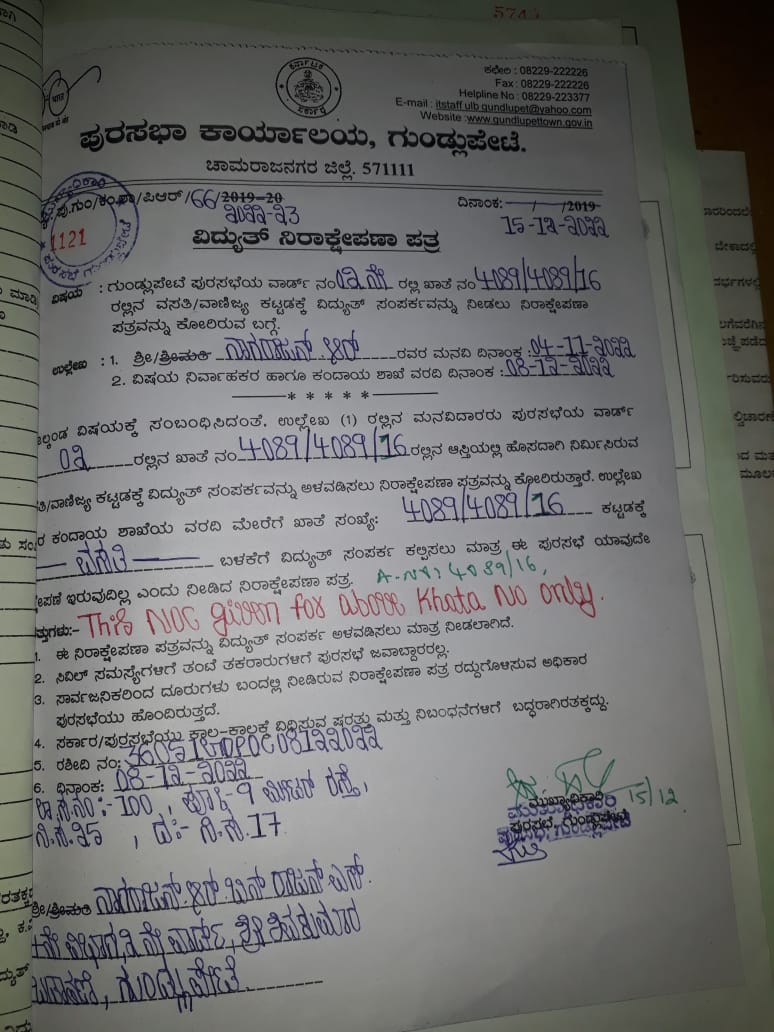 5743
ಕರ್ನಾಟಕ
ಸರ್ಕಾರ
ಕಛೇರಿ : 08229-222226
Fax : 08229-222226
Helpline No : 08229-223377
E-mail : itstaff ulb gundlupet@yahoo.com
Website : www.gundlupettown.gov.in
ಪುರಸಭಾ ಕಾರ್ಯಾಲಯ, ಗುಂಡ್ಲುಪೇಟೆ.
ಚಾಮರಾಜನಗರ ಜಿಲ್ಲೆ. 571111
ಪು.ಗುಂ/ಕಂ.ಶಾ/ಪಿಆರ್/66/2019-20
2022-23
ದಿನಾಂಕ: / /2019
15-12-2022
1121
ವಿದ್ಯುತ್ ನಿರಾಕ್ಷೇಪಣಾ ಪತ್ರ
ವಿಷಯ : ಗುಂಡ್ಲುಪೇಟೆ ಪುರಸಭೆಯ ವಾರ್ಡ್ ನಂ 02ನೇ ರಲ್ಲಿ ಖಾತೆ ನಂ 4089/4089/16
ರಲ್ಲಿನ ವಸತಿ/ವಾಣಿಜ್ಯ ಕಟ್ಟಡಕ್ಕೆ ವಿದ್ಯುತ್ ಸಂಪರ್ಕವನ್ನು ನೀಡಲು ನಿರಾಕ್ಷೇಪಣಾ
ಪತ್ರವನ್ನು ಕೋರಿರುವ ಬಗ್ಗೆ.
ಉಲ್ಲೇಖ : 1. ಶ್ರೀ/ಶ್ರೀಮತಿ ನಾಗರಾಜನ್ ಆರ್ ರವರ ಮನವಿ ದಿನಾಂಕ : 04-11-2022
2. ವಿಷಯ ನಿರ್ವಾಹಕರ ಹಾಗೂ ಕಂದಾಯ ಶಾಖೆ ವರದಿ ದಿನಾಂಕ : 08-12-2022
*****
ಲ್ಕಂಡ ವಿಷಯಕ್ಕೆ ಸಂಬಂಧಿಸಿದಂತೆ, ಉಲ್ಲೇಖ (1) ರಲ್ಲಿನ ಮನವಿದಾರರು ಪುರಸಭೆಯ ವಾರ್ಡ್
02 ರಲ್ಲಿನ ಖಾತೆ ನಂ 4089/4089/16 ರಲ್ಲಿನ ಆಸ್ತಿಯಲ್ಲಿ ಹೊಸದಾಗಿ ನಿರ್ಮಿಸಿರುವ
ತಿ/ವಾಣಿಜ್ಯ ಕಟ್ಟಡಕ್ಕೆ ವಿದ್ಯುತ್ ಸಂಪರ್ಕವನ್ನು ಅಳವಡಿಸಲು ನಿರಾಕ್ಷೇಪಣಾ ಪತ್ರವನ್ನು ಕೋರಿರುತ್ತಾರೆ. ಉಲ್ಲೇಖ
ರ ಕಂದಾಯ ಶಾಖೆಯ ವರದಿ ಮೇರೆಗೆ ಖಾತೆ ಸಂಖ್ಯೆ: 4089/4089/16 ಕಟ್ಟಡಕ್ಕೆ
ವಸತಿ ಬಳಕೆಗೆ ವಿದ್ಯುತ್ ಸಂಪರ್ಕ ಕಲ್ಪಿಸಲು ಮಾತ್ರ ಈ ಪುರಸಭೆ ಯಾವುದೇ
ೇಪಣೆ ಇರುವುದಿಲ್ಲ ಎಂದು ನೀಡಿದ ನಿರಾಕ್ಷೇಪಣಾ ಪತ್ರ. 4089/16,
ತ್ತುಗಳು:- This NOC given for above Khata No only.
1. ಈ ನಿರಾಕ್ಷೇಪಣಾ ಪತ್ರವನ್ನು ವಿದ್ಯುತ್ ಸಂಪರ್ಕ ಅಳವಡಿಸಲು ಮಾತ್ರ ನೀಡಲಾಗಿದೆ.
2. ಸಿವಿಲ್ ಸಮಸ್ಯೆಗಳಿಗೆ ತಂಟೆ ತಕರಾರುಗಳಿಗೆ ಪುರಸಭೆ ಜವಾಬ್ದಾರರಲ್ಲ.
3. ಸಾರ್ವಜನಿಕರಿಂದ ದೂರುಗಳು ಬಂದಲ್ಲಿ ನೀಡಿರುವ ನಿರಾಕ್ಷೇಪಣಾ ಪತ್ರ ರದ್ದುಗೊಳಿಸುವ ಅಧಿಕಾರ
ಪುರಸಭೆಯು ಹೊಂದಿರುತ್ತದೆ.
4. ಸರ್ಕಾರ/ಪುರಸಭೆಯು ಕಾಲ-ಕಾಲಕ್ಕೆ ವಿಧಿಸುವ ಷರತ್ತು ಮತ್ತು ನಿಬಂಧನೆಗಳಿಗೆ ಬದ್ಧರಾಗಿರತಕ್ಕದ್ದು.
5. ರಶೀದಿ ನಂ:
6. ದಿನಾಂಕ: 08-12-2022
:-100, ಮೀಟರ್ ರಸ್ತೆ,
25, ದ:- 17
15/12
ಮುಖ್ಯಾಧಿಕಾರಿ
ಪುರಸಭೆ, ಗುಂಡ್ಲುಪೇಟೆ
ಶ್ರೀ/ಶ್ರೀಮತಿ ನಾಗರಾಜನ್ ಆರ್ ಬಿನ್ ರಾಜನ್ ಎಸ್
ನೇ ವಿಭಾಗ, ನೇ ವಾರ್ಡ್, ಶ್ರೀ ಶಿವಕುಮಾರ
ಬಡಾವಣೆ, ಗುಂಡ್ಲುಪೇಟೆ